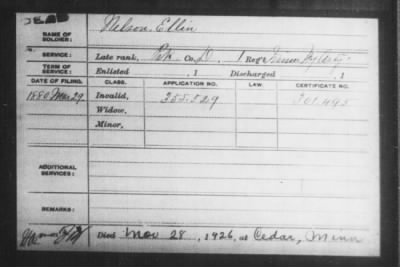 Nelson, Ellin
NAME OF SOLDIER:
SERVICE:
Late rank, Co. D, 1 Reg't
TERM OF SERVICE:
Enlisted , 1 Discharged , 1
DATE OF FILING. CLASS. APPLICATION NO. LAW. CERTIFICATE NO.
1880 Mar 29 Invalid, 355.529 301.495
Widow,
Minor,
ADDITIONAL SERVICES:
REMARKS:
Died Nov 28, 1926, at Cedar, Minn